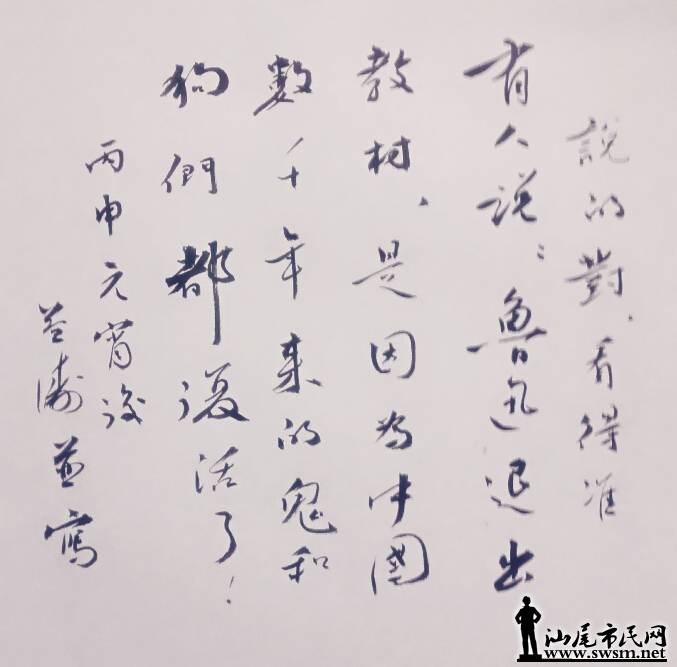 說的對，看得准
有人说：鲁迅退出
教材，是因為中國
數千年来的鬼和
狗們都復活了！
丙申元宵後
並寫
汕尾市民网
www.swsm.net